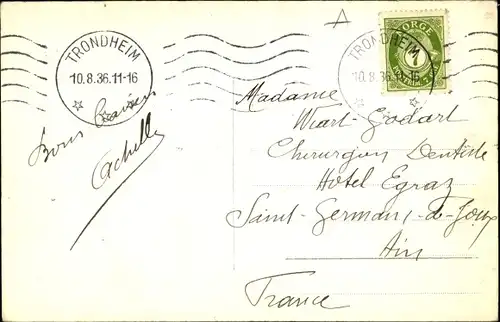 TRONDHEIM
10.8.36.11-16
TRONDHEIM
10.8.36.11-16
NORGE
7
Bons Baisers
Achille
Madame
Wiart-Godart
Chirurgien Dentiste
Hôtel Egraz
Saint-Germans-de-Joux
Ain
France